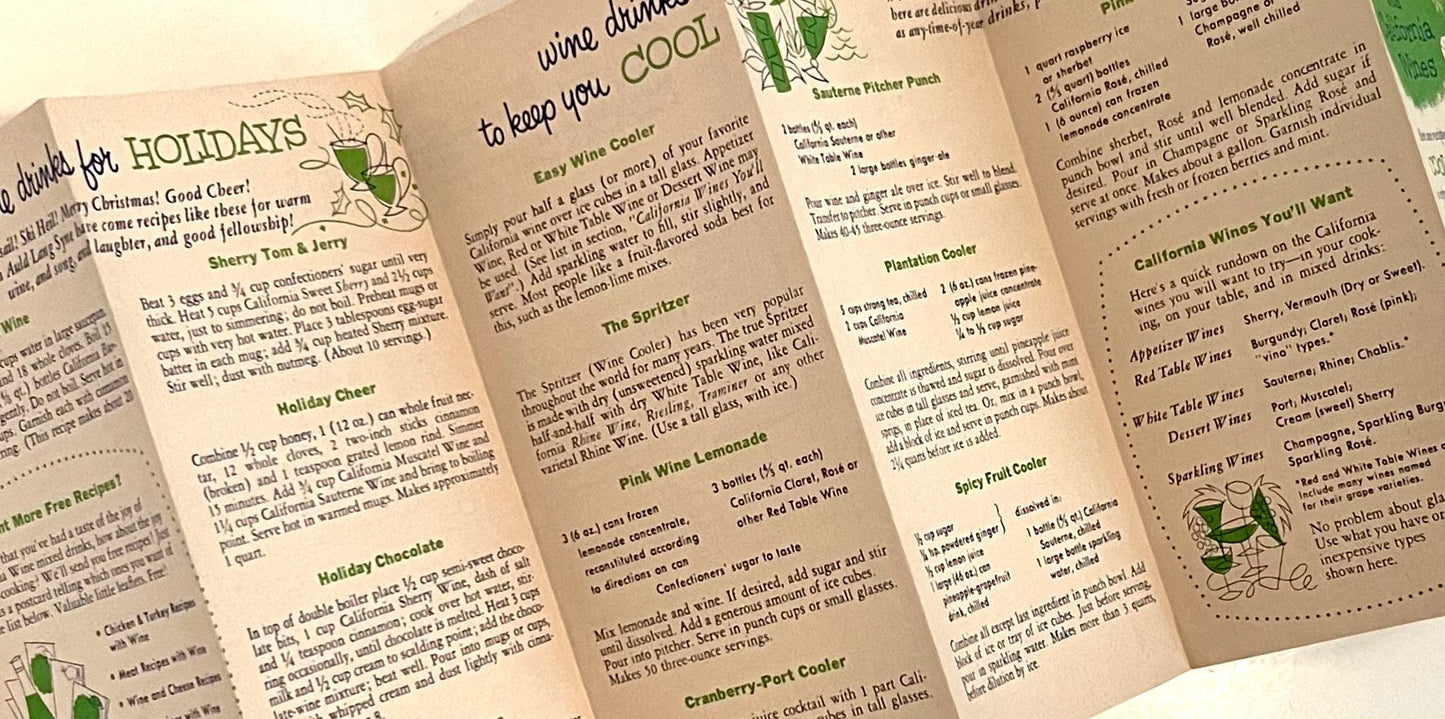 drinks for HOLIDAYS
Ski Heil! Merry Christmas! Good Cheer!
Auld Lang Syne have come recipes like these for warm
wine, and song, and laughter, and good fellowship!
Wine
cups water in large saucepan.
and 18 whole cloves. Boil 15
qt.) bottles California
gently. Do not boil. Serve hot in
cups. Garnish each with cinnamon
(This recipe makes about 20
nt More Free Recipes?
that you've had a taste of the joy of
Wine mixed drinks, how about the joy
cooking? We'll send you free recipes! Just
s a postcard telling which ones you want of
e list below. Valuable little leaflets. Free!
• Chicken & Turkey Recipes
with Wine
• Meat Recipes with Wine
• Wine and Cheese Recipes
with Wine
Sherry Tom & Jerry
Beat 3 eggs and ¾ cup confectioners' sugar until very
thick. Heat 5 cups California Sweet Sherry and 2½ cups
water, just to simmering; do not boil. Preheat mugs or
cups with very hot water. Place 3 tablespoons egg-sugar
batter in each mug; add ¾ cup heated Sherry mixture.
Stir well; dust with nutmeg. (About 10 servings.)
Holiday Cheer
Combine ½ cup honey, 1 (12 oz.) can whole fruit nec-
tar, 12 whole cloves, 2 two-inch sticks cinnamon
(broken) and 1 teaspoon grated lemon rind. Simmer
15 minutes. Add ¾ cup California Muscatel Wine and
1¼ cups California Sauterne Wine and bring to boiling
point. Serve hot in warmed mugs. Makes approximately
1 quart.
Holiday Chocolate
In top of double boiler place ½ cup semi-sweet choco-
late bits, 1 cup California Sherry Wine, dash of salt
and ¼ teaspoon cinnamon; cook over hot water, stir-
ring occasionally, until chocolate is melted. Heat 3 cups
milk and ½ cup cream to scalding point; add the choco-
late-wine mixture; beat well. Pour into mugs or cups,
whipped cream and dust lightly with cinna-
wine drinks
to keep you COOL
Easy Wine Cooler
Simply pour half a glass (or more) of your favorite
California wine over ice cubes in a tall glass. Appetizer
Wine, Red or White Table Wine or Dessert Wine may
be used. (See list in section, "California Wines You'll
Want".) Add sparkling water to fill, stir slightly, and
serve. Most people like a fruit-flavored soda best for
this, such as the lemon-lime mixes.
The Spritzer
The Spritzer (Wine Cooler) has been very popular
throughout the world for many years. The true Spritzer
is made with dry (unsweetened) sparkling water mixed
half-and-half with dry White Table Wine, like Cali-
fornia Rhine Wine, Riesling, Traminer or any other
varietal Rhine Wine. (Use a tall glass, with ice.)
Pink Wine Lemonade
3 (6 oz.) cans frozen
lemonade concentrate,
reconstituted according
to directions on can
3 bottles (⅘ qt. each)
California Claret, Rosé or
other Red Table Wine
Confectioners' sugar to taste
Mix lemonade and wine. If desired, add sugar and stir
until dissolved. Add a generous amount of ice cubes.
Pour into pitcher. Serve in punch cups or small glasses.
Makes 50 three-ounce servings.
Cranberry-Port Cooler
juice cocktail with 1 part Cali-
cubes in tall glasses.
here are delicious
as any-time-of-year drinks,
Sauterne Pitcher Punch
2 bottles (⅘ qt. each)
California Sauterne or other
White Table Wine
2 large bottles ginger-ale
Pour wine and ginger ale over ice. Stir well to blend.
Transfer to pitcher. Serve in punch cups or small glasses.
Makes 40-45 three-ounce servings.
Plantation Cooler
3 cups strong tea, chilled
2 cups California
Muscatel Wine
2 (6 oz.) cans frozen pine-
apple juice concentrate
⅓ cup lemon juice
¼ to ⅓ cup sugar
Combine all ingredients, stirring until pineapple juice
concentrate is thawed and sugar is dissolved. Pour over
ice cubes in tall glasses and serve, garnished with mint
sprigs, in place of iced tea. Or, mix in a punch bowl,
add a block of ice and serve in punch cups. Makes about
2¼ quarts before ice is added.
Spicy Fruit Cooler
cup sugar
tsp. powdered ginger
dissolved in:
cup lemon juice
1 large (46 oz.) can
pineapple-grapefruit
drink, chilled
1 bottle (⅘ qt.) California
Sauterne, chilled
1 large bottle sparkling
water, chilled
Combine all except last ingredient in punch bowl. Add
block of ice or tray of ice cubes. Just before serving,
pour in sparkling water. Makes more than 3 quarts,
before dilution by ice.
Pink
1 quart raspberry ice
or sherbet
2 (⅘ quart) bottles
California Rosé, chilled
1 (6 ounce) can frozen
lemonade concentrate
1 large
Champagne or
Rosé, well chilled
Combine sherbet, Rosé and lemonade concentrate in
punch bowl and stir until well blended. Add sugar if
desired. Pour in Champagne or Sparkling Rosé and
serve at once. Makes about a gallon. Garnish individual
servings with fresh or frozen berries and mint.
California Wines You'll Want
Here's a quick rundown on the California
wines you will want to try—in your cook-
ing, on your table, and in mixed drinks:
Appetizer Wines Sherry, Vermouth (Dry or Sweet).
Red Table Wines Burgundy; Claret; Rosé (pink);
"vino" types.*
White Table Wines Sauterne; Rhine; Chablis.*
Dessert Wines Port; Muscatel;
Cream (sweet) Sherry
Sparkling Wines Champagne, Sparkling Burgu
Sparkling Rosé.
*Red and White Table Wines
include many wines named
for their grape varieties.
No problem about gla
Use what you have or
inexpensive types
shown here.
California
Wines